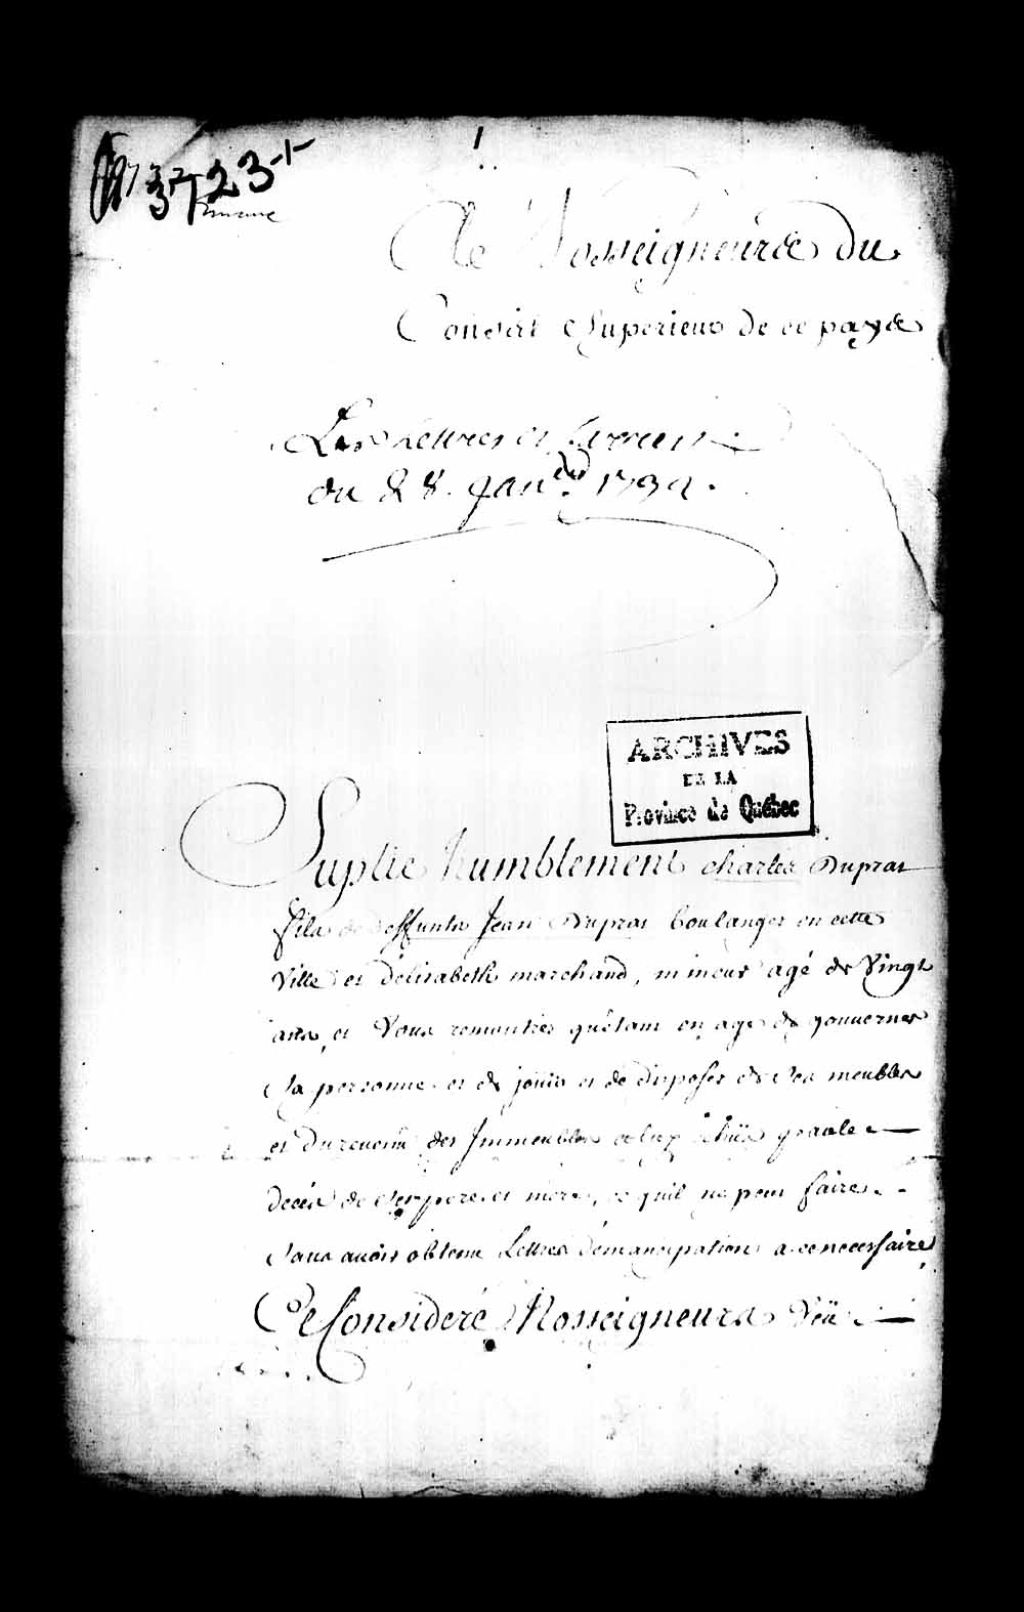 3723-1-
1
A Nosseigneurs du
Conseil Superieur de ce pays
Les Lettres et
du 28. Janer. 1732.
ARCHIVES
DE LA
Province de Québec
Suplie humblement charles Dupras
fils de deffunts Jean Dupras boulanger en cette
Ville et d'elisabeth marchand, mineur agé de Vingt
ans, et Vous remontre qu'étant en age de gouverner
Sa personne et de jouir et de disposer de ses meubles
et du revenu des Immeubles a luy échüs par le
decès de ses pere et mere, ce quil ne peut faire
Sans avoir obtenu Lettres d'émancipation a ce necessaire
Ce Consideré Nosseigneurs Veü